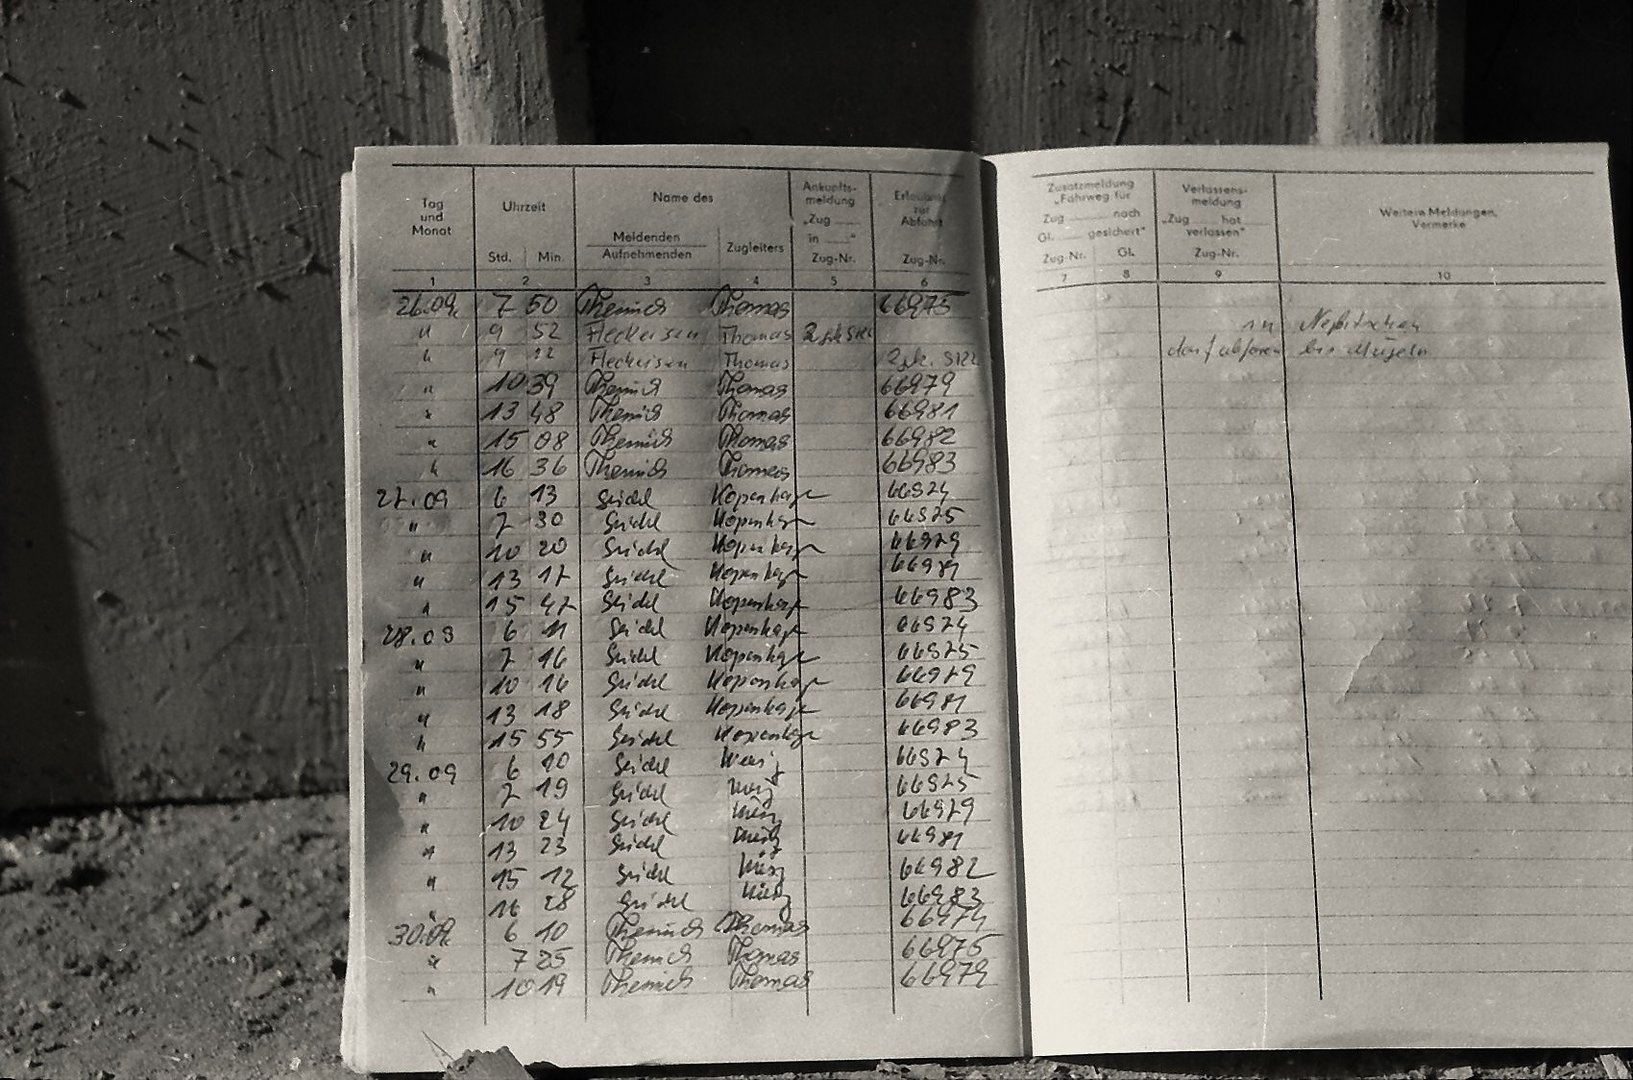 Tag und Monat
Uhrzeit
Std. Min.
Name des
Meldenden
Aufnehmenden
Zugleiters
Ankunfts-
meldung
„Zug ......
in ......"
Zug-Nr.
Erlaubnis
zur
Abfahrt
Zug-Nr.
1 2 3 4 5 6
26.09. 7 50 Themich Thomas 66975
" 9 52 Fleckeisen Thomas
" 9 Fleckeisen Thomas
" 10 39 Themich Thomas 66979
" 13 48 Themich Thomas 66981
" 15 08 Themich Thomas 66982
" 16 36 Themich Thomas 66983
27.09 6 13 Seidel Kopenhagen 66974
" 7 30 Seidel Kopenhagen 66975
" 10 20 Seidel Kopenhagen 66979
" 13 17 Seidel Kopenhagen 66981
" 15 47 Seidel Kopenhagen 66983
28.09 6 11 Seidel Kopenhagen 66974
" 7 16 Seidel Kopenhagen 66975
" 10 16 Seidel Kopenhagen 66979
" 13 18 Seidel Kopenhagen 66981
" 15 55 Seidel Kopenhagen 66983
29.09 6 10 Seidel 66974
" 7 19 Seidel 66975
" 10 24 Seidel 66979
" 13 23 Seidel 66981
" 15 12 Seidel 66982
" 16 28 Seidel 66983
30.09. 6 10 Themich Thomas 66974
" 7 25 Themich Thomas 66975
" 10 19 Themich Thomas 66979
Zusatzmeldung
„Fahrweg für
Zug ...... nach
Gl. ...... gesichert"
Zug-Nr. Gl.
Verlassens-
meldung
„Zug ...... hat
verlassen"
Zug-Nr.
Weitere Meldungen,
Vermerke
7 8 9 10
in Nebitschen
darf abfahren bis Mügeln